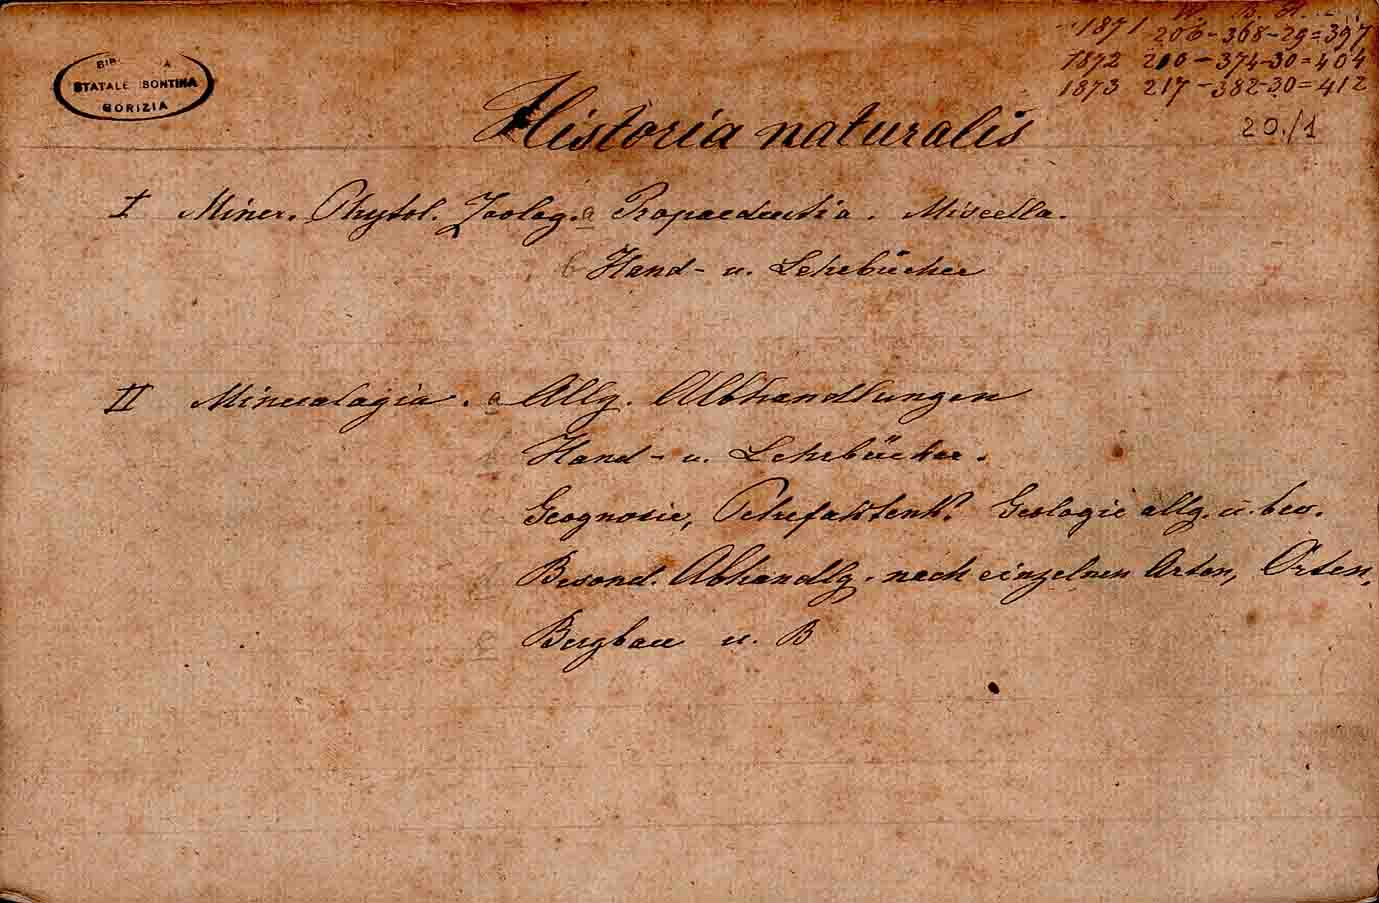 BIB. A
STATALE ISONTINA
GORIZIA
W. B. H.
1871 206-368-29=397
1872 210-374-30=404
1873 217-382-30=412
20./1
Historia naturalis
I Miner. Phytol. Zoolog. a Propaedeutia. Miscella.
b Hand- u. Lehrbücher
II Mineralogia. a Allg. Abhandlungen
b Hand- u. Lehrbücher.
c Geognosie, Petrefaktenk. Geologie allg. u. bes.
d Besond. Abhandlg. nach einzelnen Arten, Orten,
e Bergbau u. B